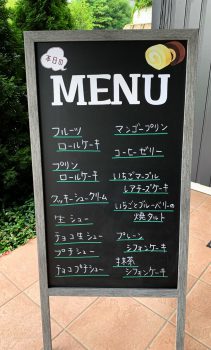 本日の
MENU
フルーツ
ロールケーキ
プリン
ロールケーキ
クッキーシュークリーム
生シュー
チョコ生シュー
プチシュー
チョコプチシュー
マンゴープリン
コーヒーゼリー
いちごマーブル
レアチーズケーキ
いちごとブルーベリーの
焼タルト
プレーン
シフォンケーキ
抹茶
シフォンケーキ